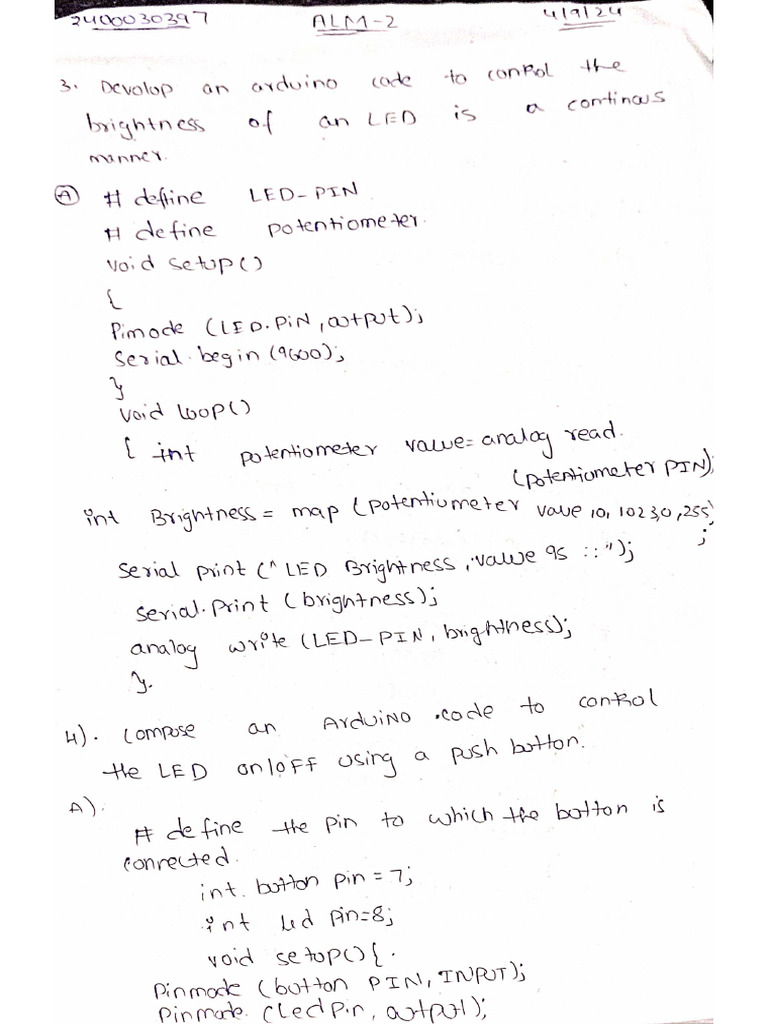 2400030397 ALM-2 4/9/24
3. Develop an arduino code to control the
brightness of an LED is a continous
manner.
A # define LED-PIN
# define potentiometer.
void setup()
{
Pimode (LED.PIN, output);
Serial. begin (9600);
}
void loop()
{ int potentiometer value= analog read.
(potentiometer PIN);
int Brightness = map (potentiometer value 10, 1023,0,255)
;
Serial print (" LED Brightness, value 9s ::");
serial.print (brightness);
analog write (LED-PIN, brightness);
}.
4). Compose an Arduino .code to control
the LED on/off using a push button.
A).
# define the pin to which the button is
connected.
int. button pin = 7;
int led pin=8;
void setup() { .
pinmode (button PIN, INPUT);
pinmode. (led Pin, output);